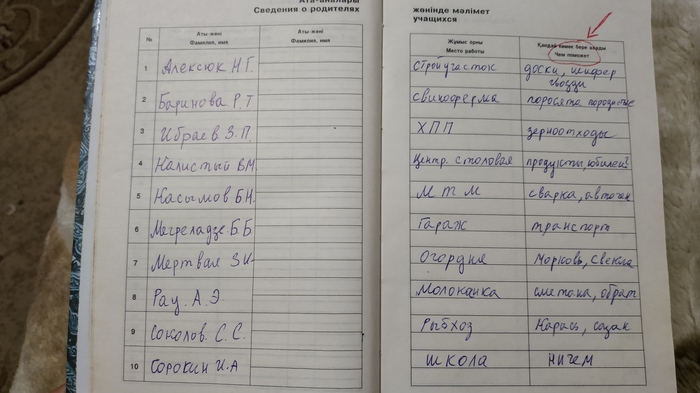 Ата-аналары
Сведения о родителях
№
Аты-жөні
Фамилия, имя
Аты-жөні
Фамилия, имя
1 Алексюк Н.Г.
2 Баринова Р.Т.
3 Ибраев З.П.
4 Калистый В.М.
5 Касымов Б.Н.
6 Мегреладзе Б.Б
7 Мертвая З.К.
8 Рау. А.Э.
9 Соколов. С.С.
10 Сорокин И.А
жөнінде мәлімет
учащихся
Жұмыс орны
Место работы
Қандай көмек бере алады
Чем поможет
Стройучасток доски, шифер
гвозди
Свиноферма поросята породистые
ХПП зерноотходы
Центр. столовая продукты, юбилей?
МТМ сварка, автоген
Гараж транспорт
Огородня Морковь, Свекла
Молоканка сметана, обрат
Рыбхоз Карась, сазан
школа ничем